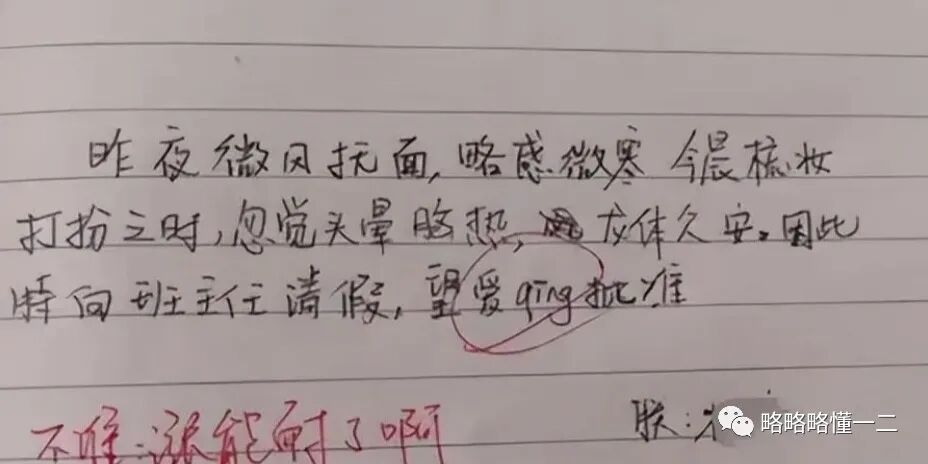 昨夜微风抚面,略感微寒 今晨梳妆
打扮之时,忽觉头晕脑热, 龙体久安。因此
特向班主任请假,望爱qing批准
不准:涨能耐了啊
朕:
略略略懂一二